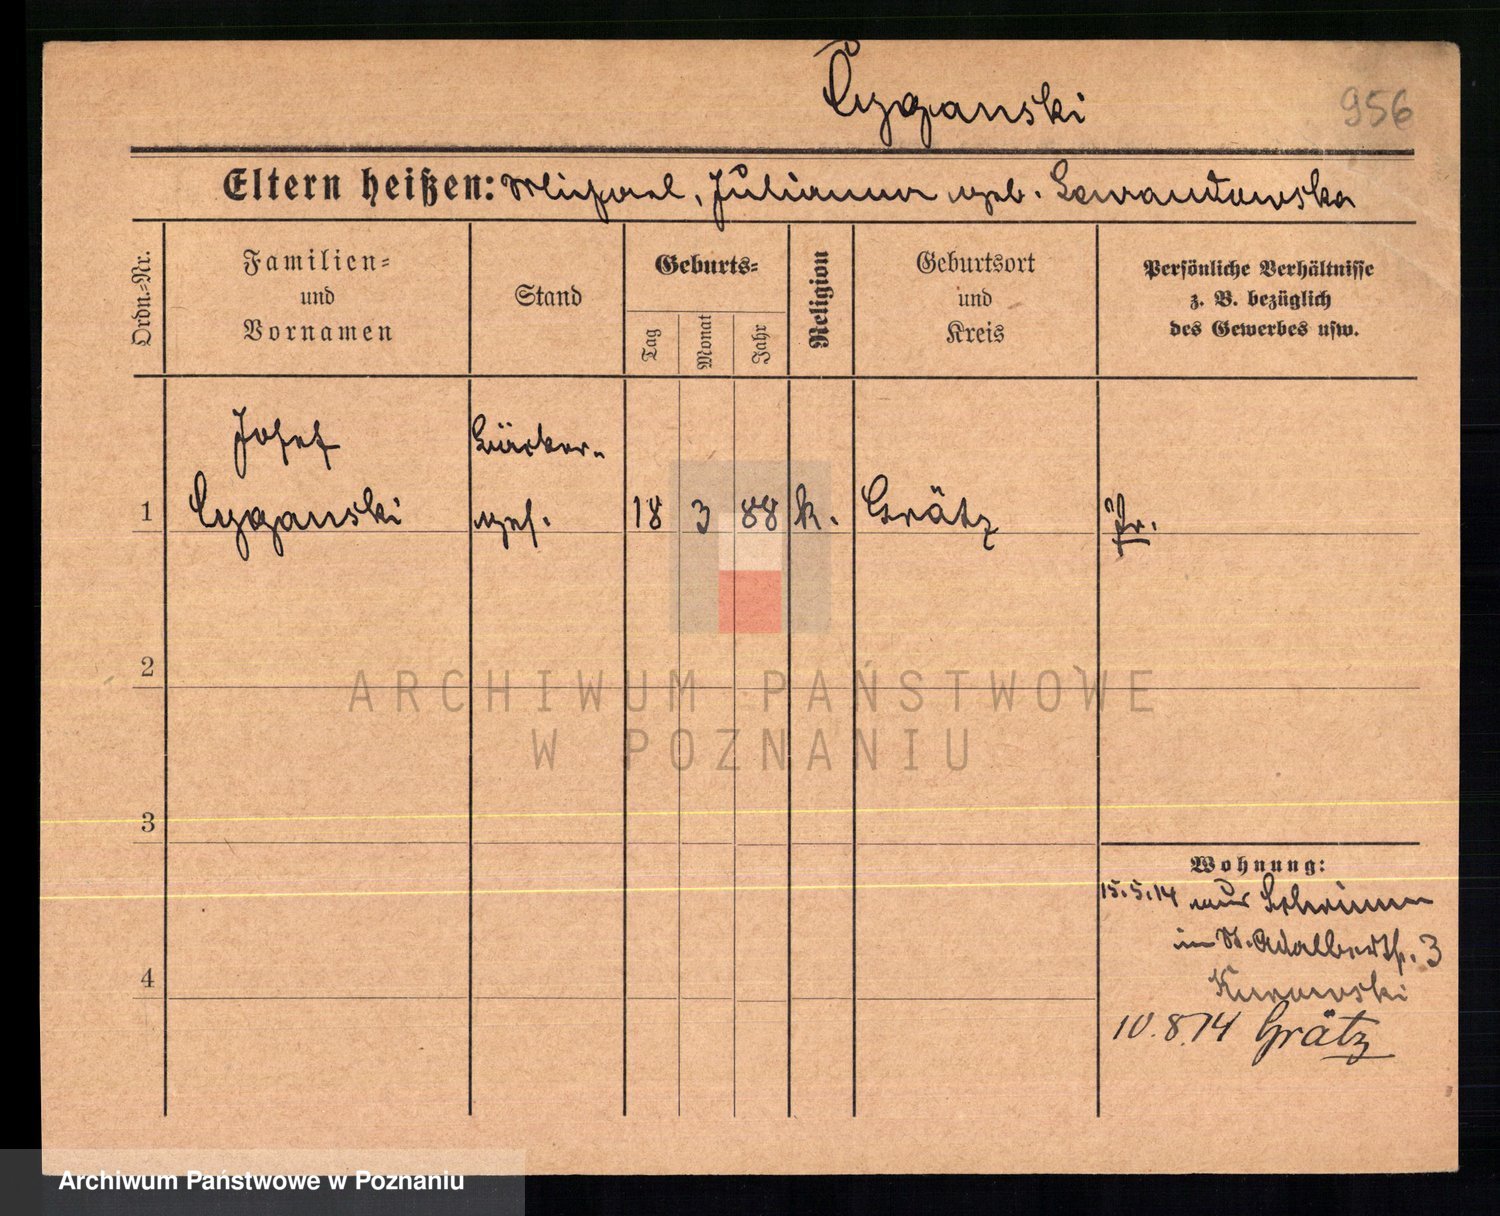 Cyganski
956
Eltern heißen: Michael, Julianna geb. Lewandowska
Ordn.-Nr.
Familien- und Vornamen
Stand
Geburts-
Tag
Monat
Jahr
Religion
Geburtsort und Kreis
Persönliche Verhältnisse
z. B. bezüglich
des Gewerbes usw.
Josef Bäcker-
1 Cyganski ges. 18 3 88 k. Grätz Pr.
2
ARCHIWUM PAŃSTWOWE
W POZNANIU
3
Wohnung:
15.5.14 aus Schrimm
in St. Adalbertstr. 3
4
10.8.14 Grätz
Archiwum Państwowe w Poznaniu